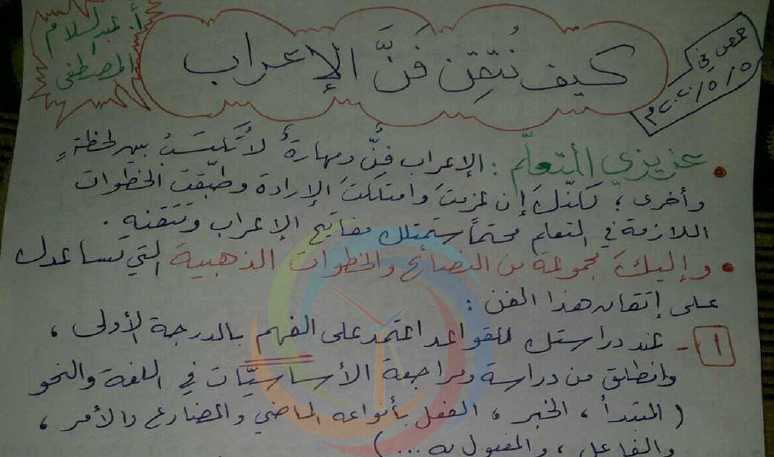 أ. عبد السلام
المصطفى
كيف نُتقِن فَنَّ الإعراب
حمص في
٥/٥/٢٠٢٠م
• عزيزي المتعلّم : الإعراب فنٌّ ومهارةٌ لا تُكتسَبُ بين لحظةٍ
وأخرى ؛ لكنّكَ إن عزمتَ وامتلكتَ الإرادة وطبّقت الخطوات
اللازمة في التعلم حتماً ستمتلك مفاتيح الإعراب وتتقنه .
• وإليكَ مجموعة من النصائح والخطوات الذهبية التي تساعدك
على إتقان هذا الفن :
١ - عند دراستك للقواعد اعتمد على الفهم بالدرجة الأولى ،
وانطلق من دراسة ومراجعة الأساسيّات في اللغة والنحو
( المبتدأ ، الخبر ، الفعل بأنواعه الماضي والمضارع والأمر ،
والفاعل ، والمفعول به ... )